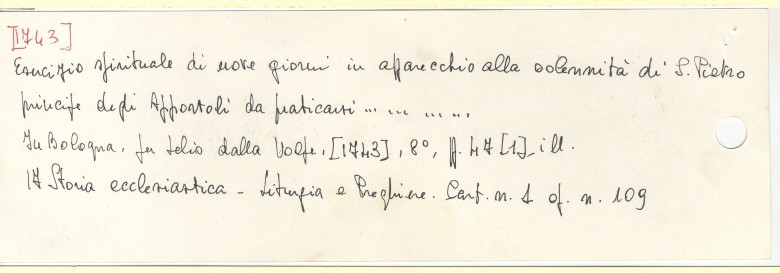 [1743]
Esercizio spirituale di nove giorni in apparecchio alla solennità di S. Pietro
principe degli Appostoli da praticarsi ... ... ... ...
In Bologna, per Lelio dalla Volpe, [1743], 8°, pp. 47 [1], ill.
17 Storia ecclesiastica - Liturgia e Preghiere. Cart. n. 1 op. n. 109